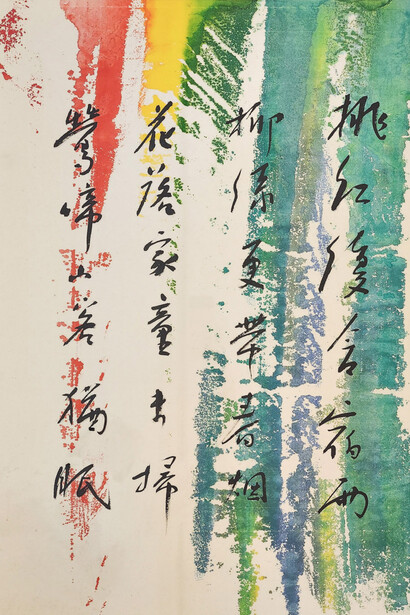 桃紅復含宿雨
柳綠更帶春烟
花落家童未掃
鶯啼山客猶眠